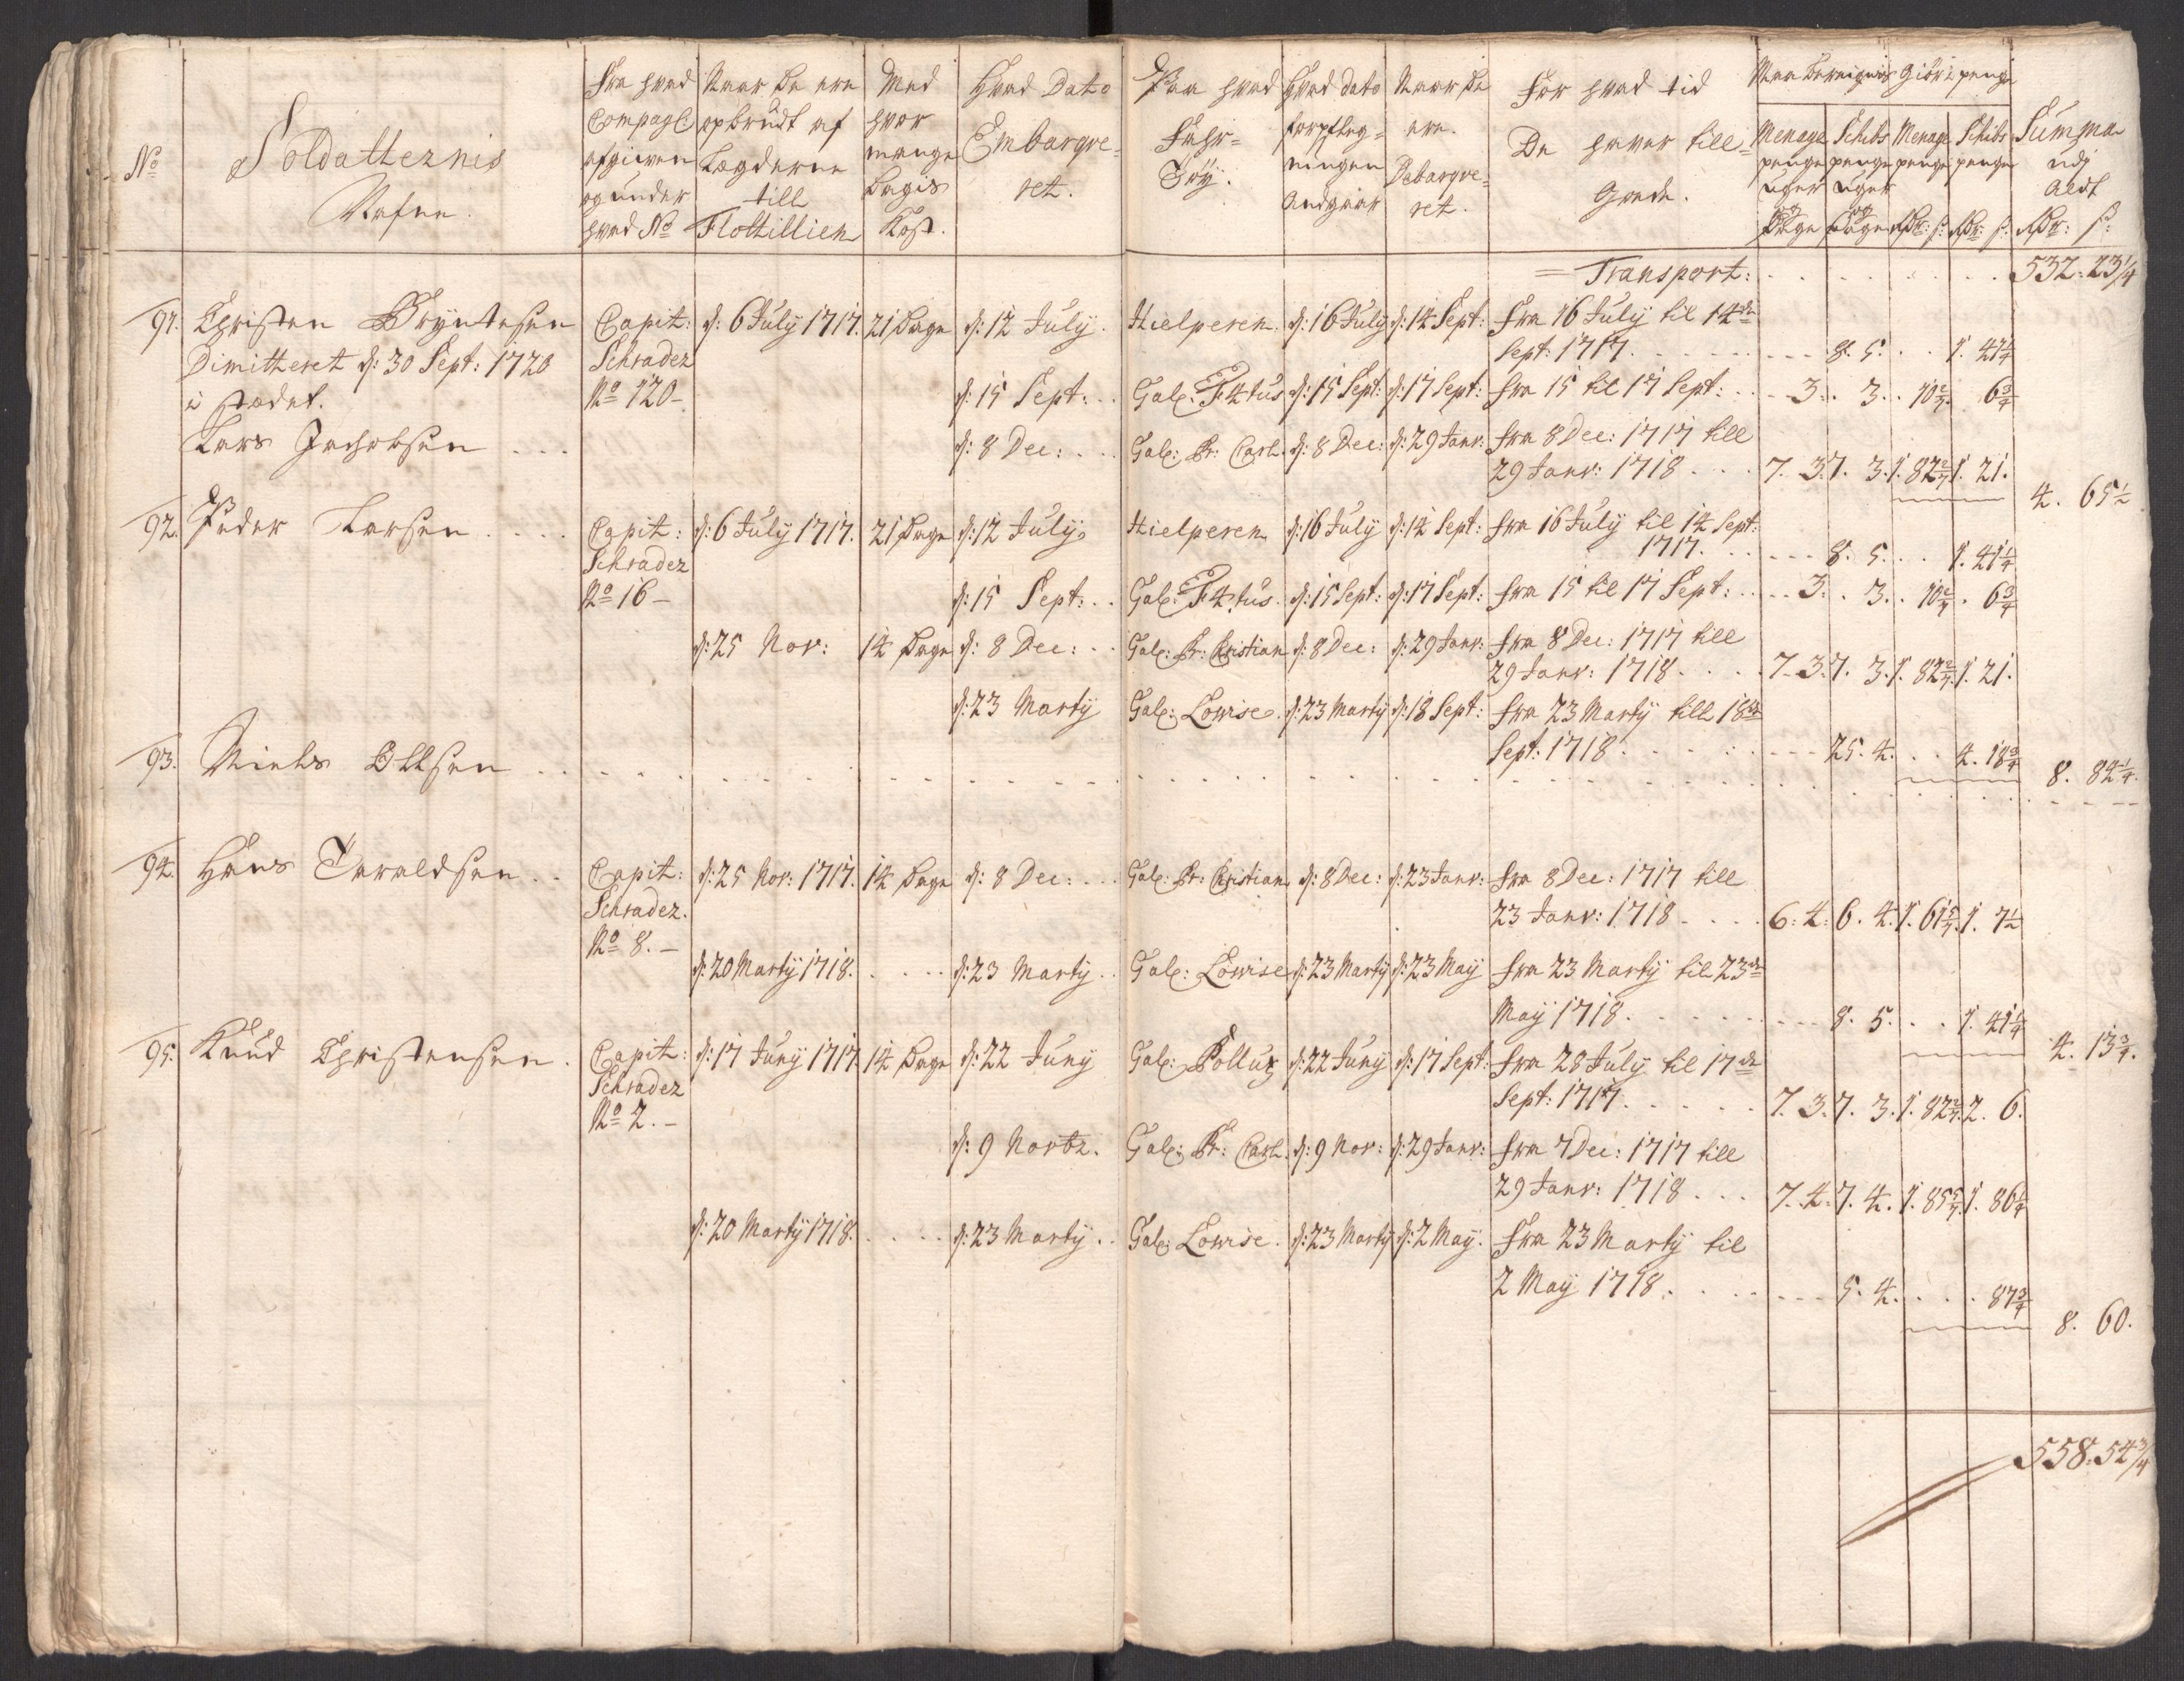 No
Soldatternis
Nafne.
Fra hvad
Compag:
afgiven
og under
hvad No
Naar De ere
opbrudt af
Lægderne
till
Flottillien
Med
hvor
mange
Dagis
Kost.
Hvad Dato
Embarqve-
ret.
Paa hvad
Fahr-
Töy.
Hvad dato
forpfleg-
ningen
Andgaar
Naar De
ere
Debarqve-
ret.
For hvad tid
De haver till
Gode.
Giör i penge
Menage
penge
uger
og
Dage
Schibs
penge
uger
og
Dage
Menage
penge
Rdr: s:
Schibs
penge
Rdr: s:
Summa
udj
Aldt
Rdr: s:
Transport: 532. 23 1/4
91. Christen Bryntesen Capit: d: 6 July 1717. 21 Dage d: 12 July. Hielperen d: 16 July d: 14 Sept: Fra 16 July til 14de
Dimitteret d: 30 Sept: 1720 Schrader Sept: 1717. 8. 5. 1. 41 1/4
i stædet. No 120- d: 15 Sept: Gal: F4tus d: 15 Sept: d: 17 Sept: fra 15 til 17 Sept: 3. 3. 10 2/7 6 3/4
Lars Jachobsen d: 8 Dec: Gal: Pr: Carl. d: 8 Dec: d: 29 Janv: fra 8 Dec: 1717 till
29 Janv: 1718 7. 3. 7. 3. 1. 82 2/7 1. 21.
4. 65 1/2
92. Peder Larsen Capit: d: 6 July 1717. 21 Dage d: 12 July. Hielperen d: 16 July d: 14 Sept: fra 16 July til 14 Sept:
Schrader 1717. 8. 5. 1. 41 1/4
No 16- d: 15 Sept: Gal: F4tus. d: 15 Sept: d: 17 Sept: fra 15 til 17 Sept: 3. 3. 10 2/7. 6 3/4
d: 25 Nov: 14 Dage d: 8 Dec: Gal: Pr: Christian d: 8 Dec: d: 29 Janv: fra 8 Dec: 1717 till
29 Janv: 1718 7. 3. 7. 3. 1. 82 2/7. 1. 21.
d: 23 Marty Gal: Lovise. d: 23 Marty d: 18 Sept: fra 23 Marty till 18de
Sept: 1718 25. 4. 4. 18 3/4
8. 84 1/4.
93. Niels Ollsen
94. Hans Taraldsen Capit: d: 25 Nov: 1717. 14 Dage d: 8 Dec: Gal: Pr: Christian d: 8 Dec: d: 23 Janv: fra 8 Dec: 1717 till
Schrader. 23 Janv: 1718 6. 4. 6. 4. 1. 61 5/7. 1. 7 1/2
No 8.- d: 20 Marty 1718. d: 23 Marty Gal: Lovise d: 23 Marty d: 23 May fra 23 Marty til 23de
May 1718. 8. 5. 1. 41 1/4
4. 13 3/4.
95. Knud Christensen. Capit: d: 17 Juny 1717. 14 Dage d: 22 Juny Gal: Pollux d: 22 Juny d: 17 Sept: fra 28 July til 17de
Schrader Sept: 1717. 7. 3. 7. 3. 1. 82 2/7. 2. 6.
No 2.- d: 9 Novbr. Gal: Pr: Carl. d: 9 Nov: d: 29 Janv: fra 7 Dec: 1717 till
29 Janv: 1718 7. 4. 7. 4. 1. 85 5/7. 1. 86 1/4
d: 20 Marty 1718. d: 23 Marty Gal: Lovise. d: 23 Marty d: 2 May. Fra 23 Marty til
2 May 1718. 5. 4. 87 3/4
8. 60.
558. 54 3/4